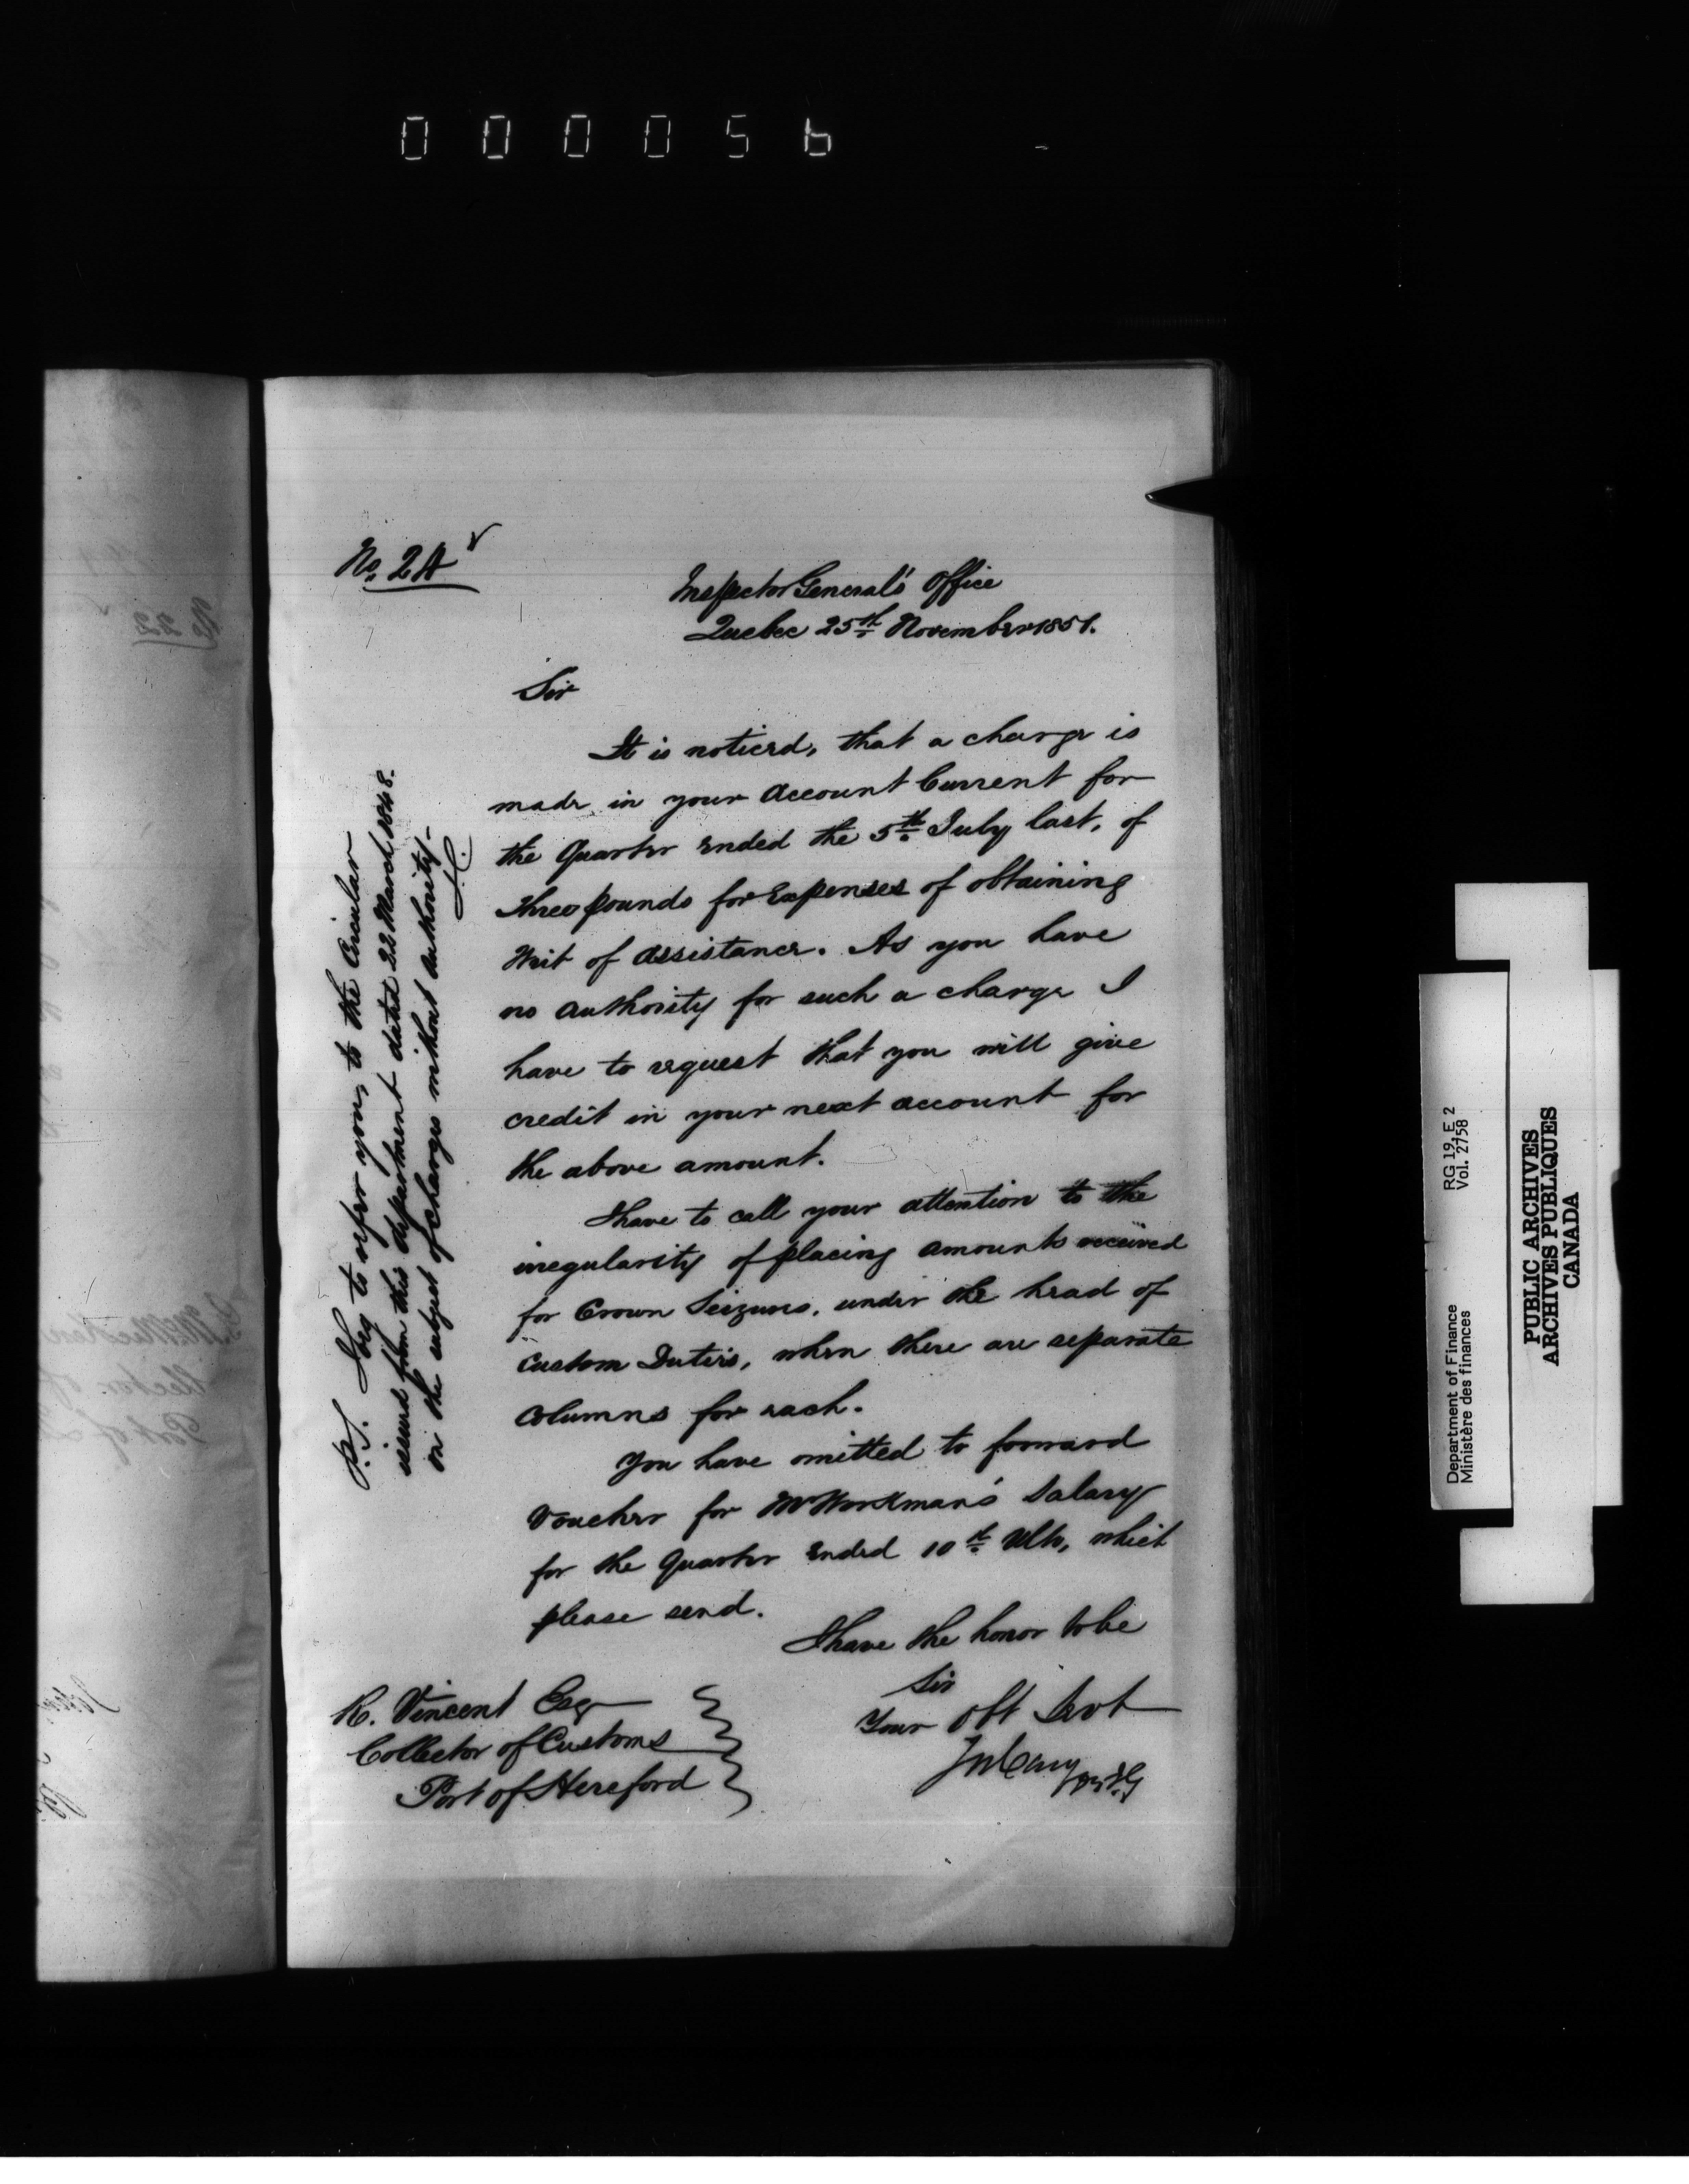 000056
No. 24
Inspector General's Office
Quebec 25th November 1851.
Sir
It is noticed, that a charge is
made in your Account Current for
the Quarter ended the 5th July last, of
three pounds for Expenses of obtaining
Writ of Assistance. As you have
no authority for such a charge I
have to request that you will give
credit in your next account for
the above amount.
I have to call your attention to the
irregularity of placing amounts received
for Crown Seizures, under the head of
Custom Duties, when there are separate
columns for each.
You have omitted to forward
Voucher for Mr Workman's Salary
for the Quarter ended 10th Ulto, which
please send.
I have the honor to be
Sir
Your Obt Servt
Jos Cary
DIG
R. Vincent Esq
Collector of Customs
Port of Hereford
P.S. I beg to refer you, to the Circular
issued from this department dated 22 March 1848.
on the subject of charges without authority.
J.C.
No 22
Department of Finance RG 19, E 2
Ministère des finances Vol. 2758
PUBLIC ARCHIVES
ARCHIVES PUBLIQUES
CANADA